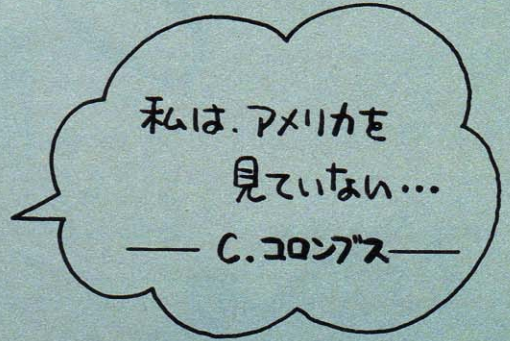 私は、アメリカを
見ていない…
—— C.コロンブス——